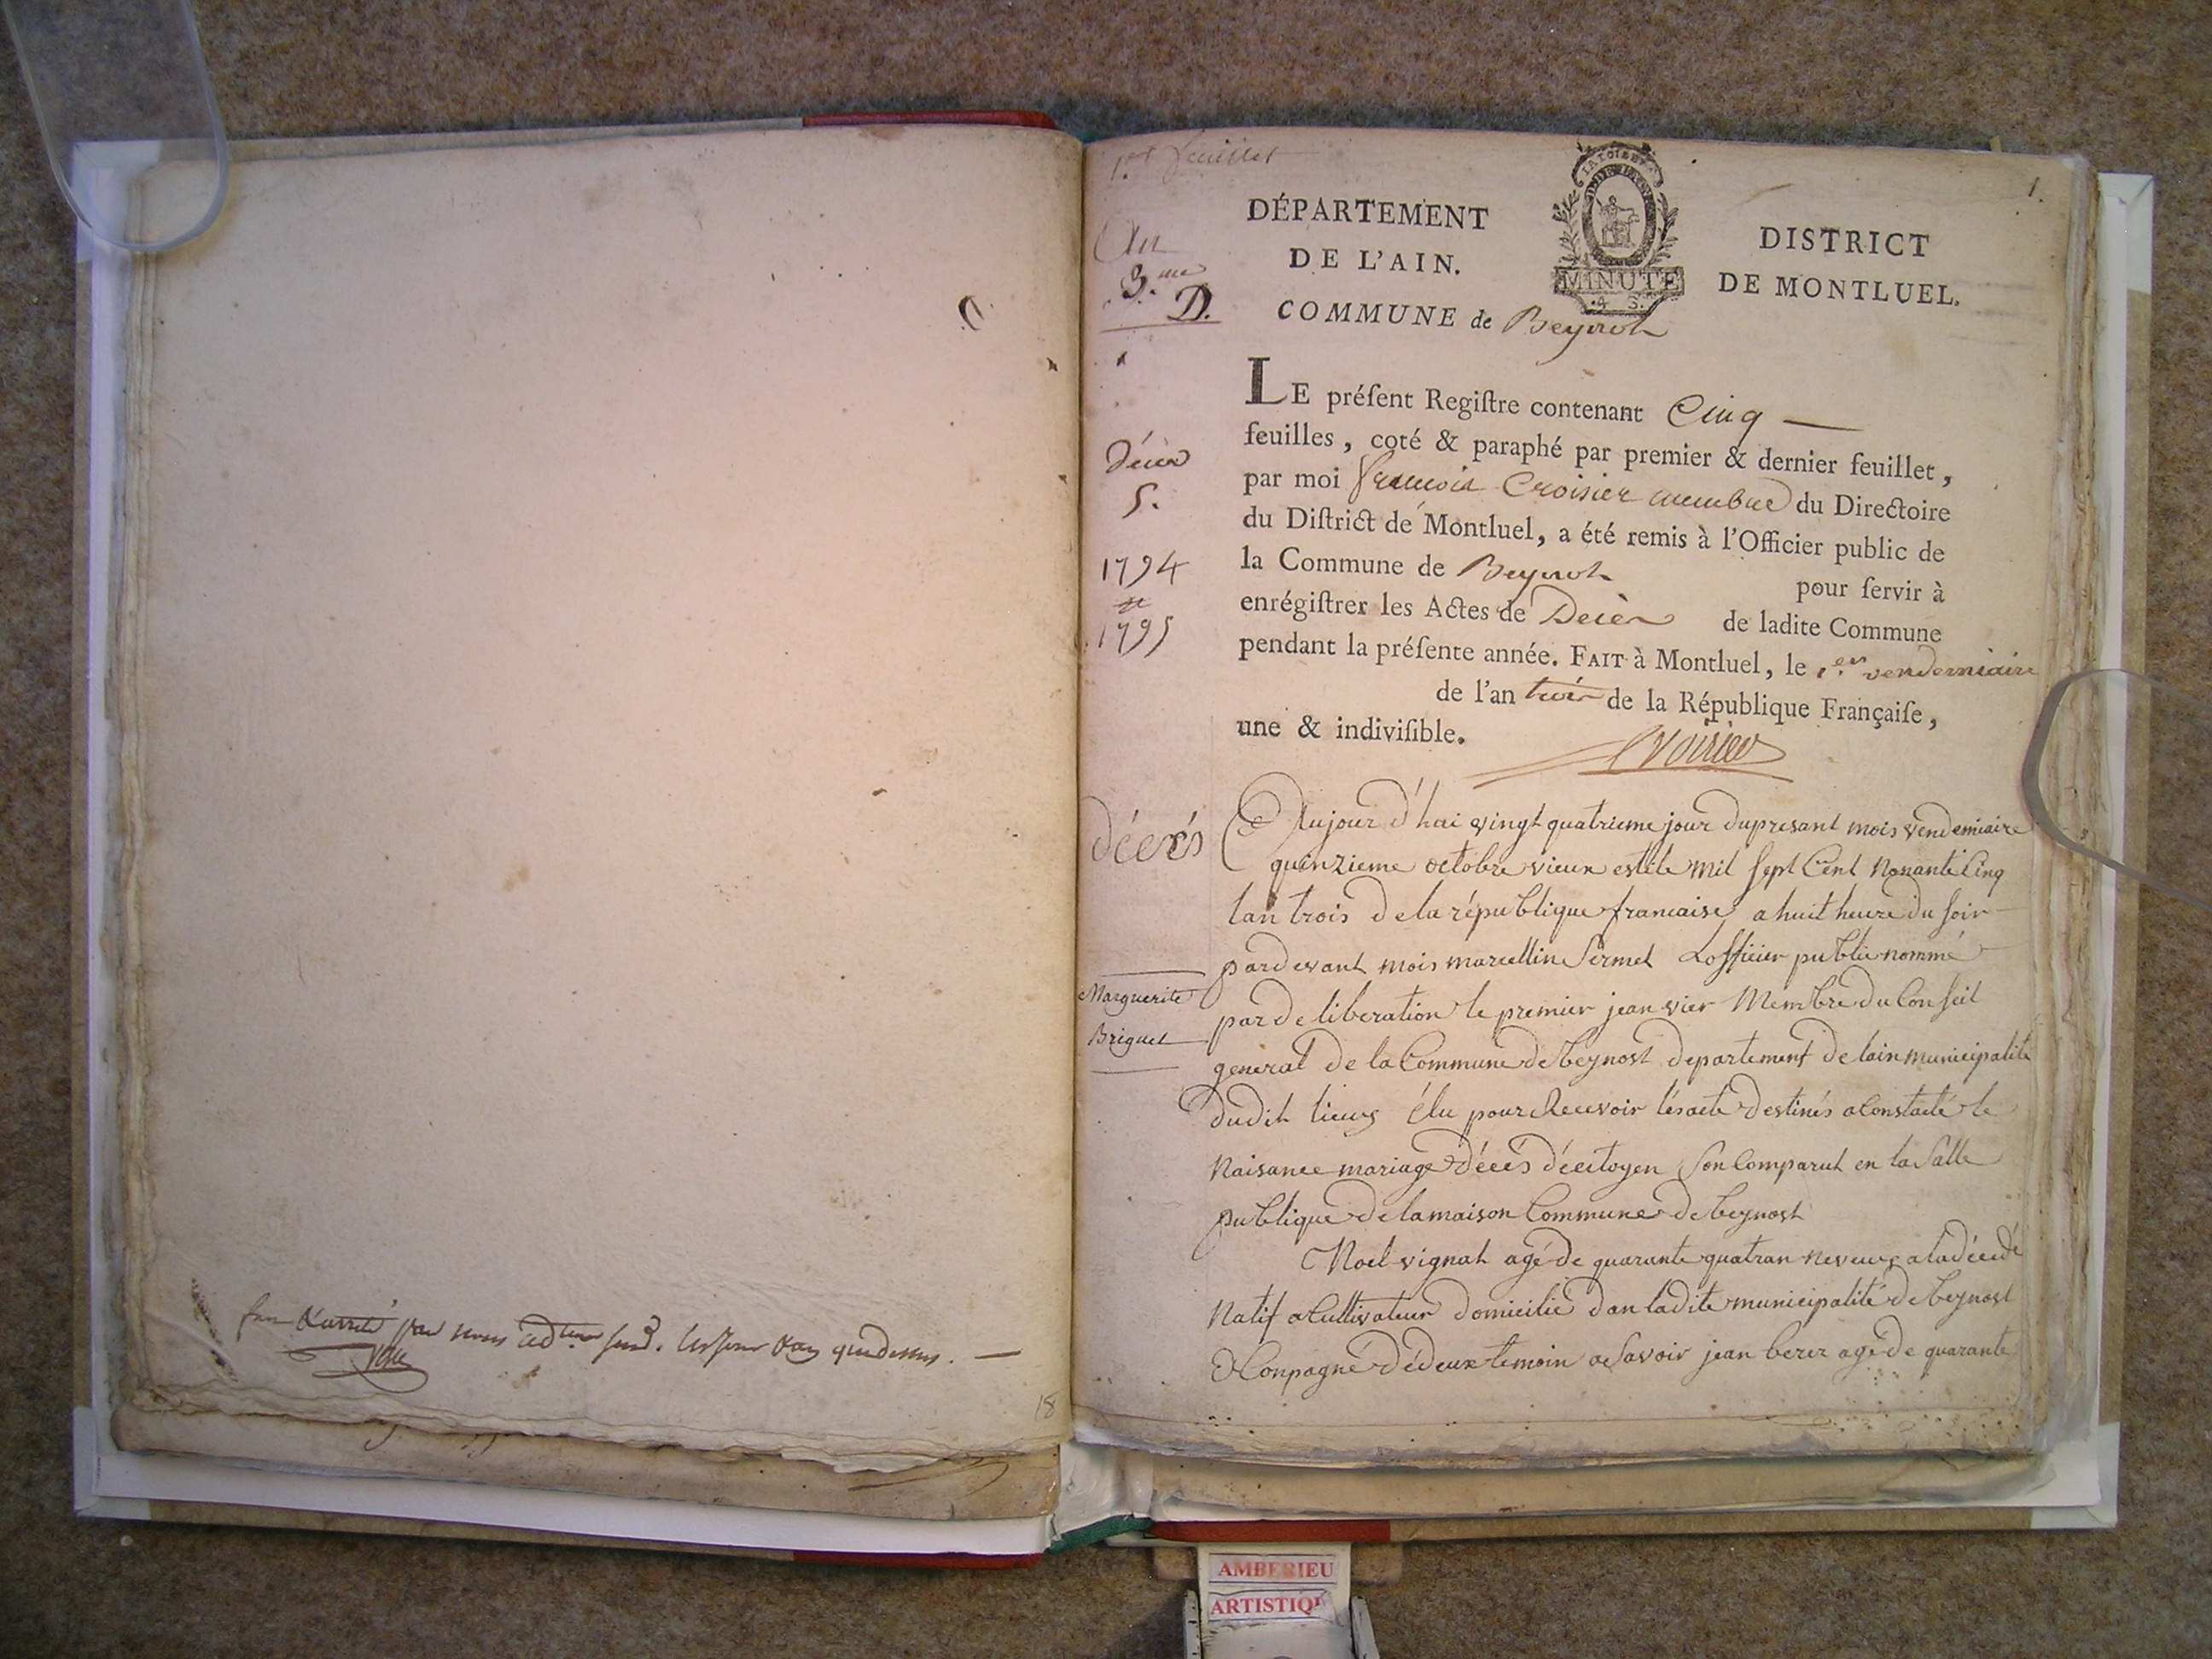 fin & arreté par nous
18
1.er feuillet
1.
An
3.me
D.
DÉPARTEMENT
DE L'AIN.
LA LOI ET LE
MINUTE
.4 S.
DISTRICT
DE MONTLUEL.
COMMUNE de Beynost
LE préſent Regiſtre contenant Cinq —
feuilles, coté & paraphé par premier & dernier feuillet,
par moi francois Croisier membre du Directoire
du Diſtrict de Montluel, a été remis à l'Officier public de
la Commune de Beynost pour ſervir à
enrégiſtrer les Actes de Décès de ladite Commune
pendant la préſente année. FAIT à Montluel, le 1.er vendemiaire
de l'an trois de la République Françaiſe,
une & indiviſible.
Croisier
Décès
5.
1794
et
1795
décés
Aujour d'hui vingt quatrieme jour du presant mois vendemiaire
quinzieme octobre vieux estile mil sept Cent Nonante Cinq
lan trois de la république francaise a huit heure du soir
pardevant mois marcellin Sermet Lofficier public nommé
Marguerite
Briguet
par de liberation le premier jeanvier Membre du Conseil
general de la Commune de beynost departement de lain municipalite
dudit lieux élu pour Recevoir lés acte destinés a Constaté le
Naisance mariage décés décitoyen son Comparut en la Salle
publique de la maison Commune de beynost
Noel vignat agé de quarante quatran neveux a la décedé
Natif a Cultivateur domicilié dan ladite municipalité de beynost
a Conpagne dédeux temoin a Savoir jean berer agé de quarante
AMBERIEU
ARTISTIQU